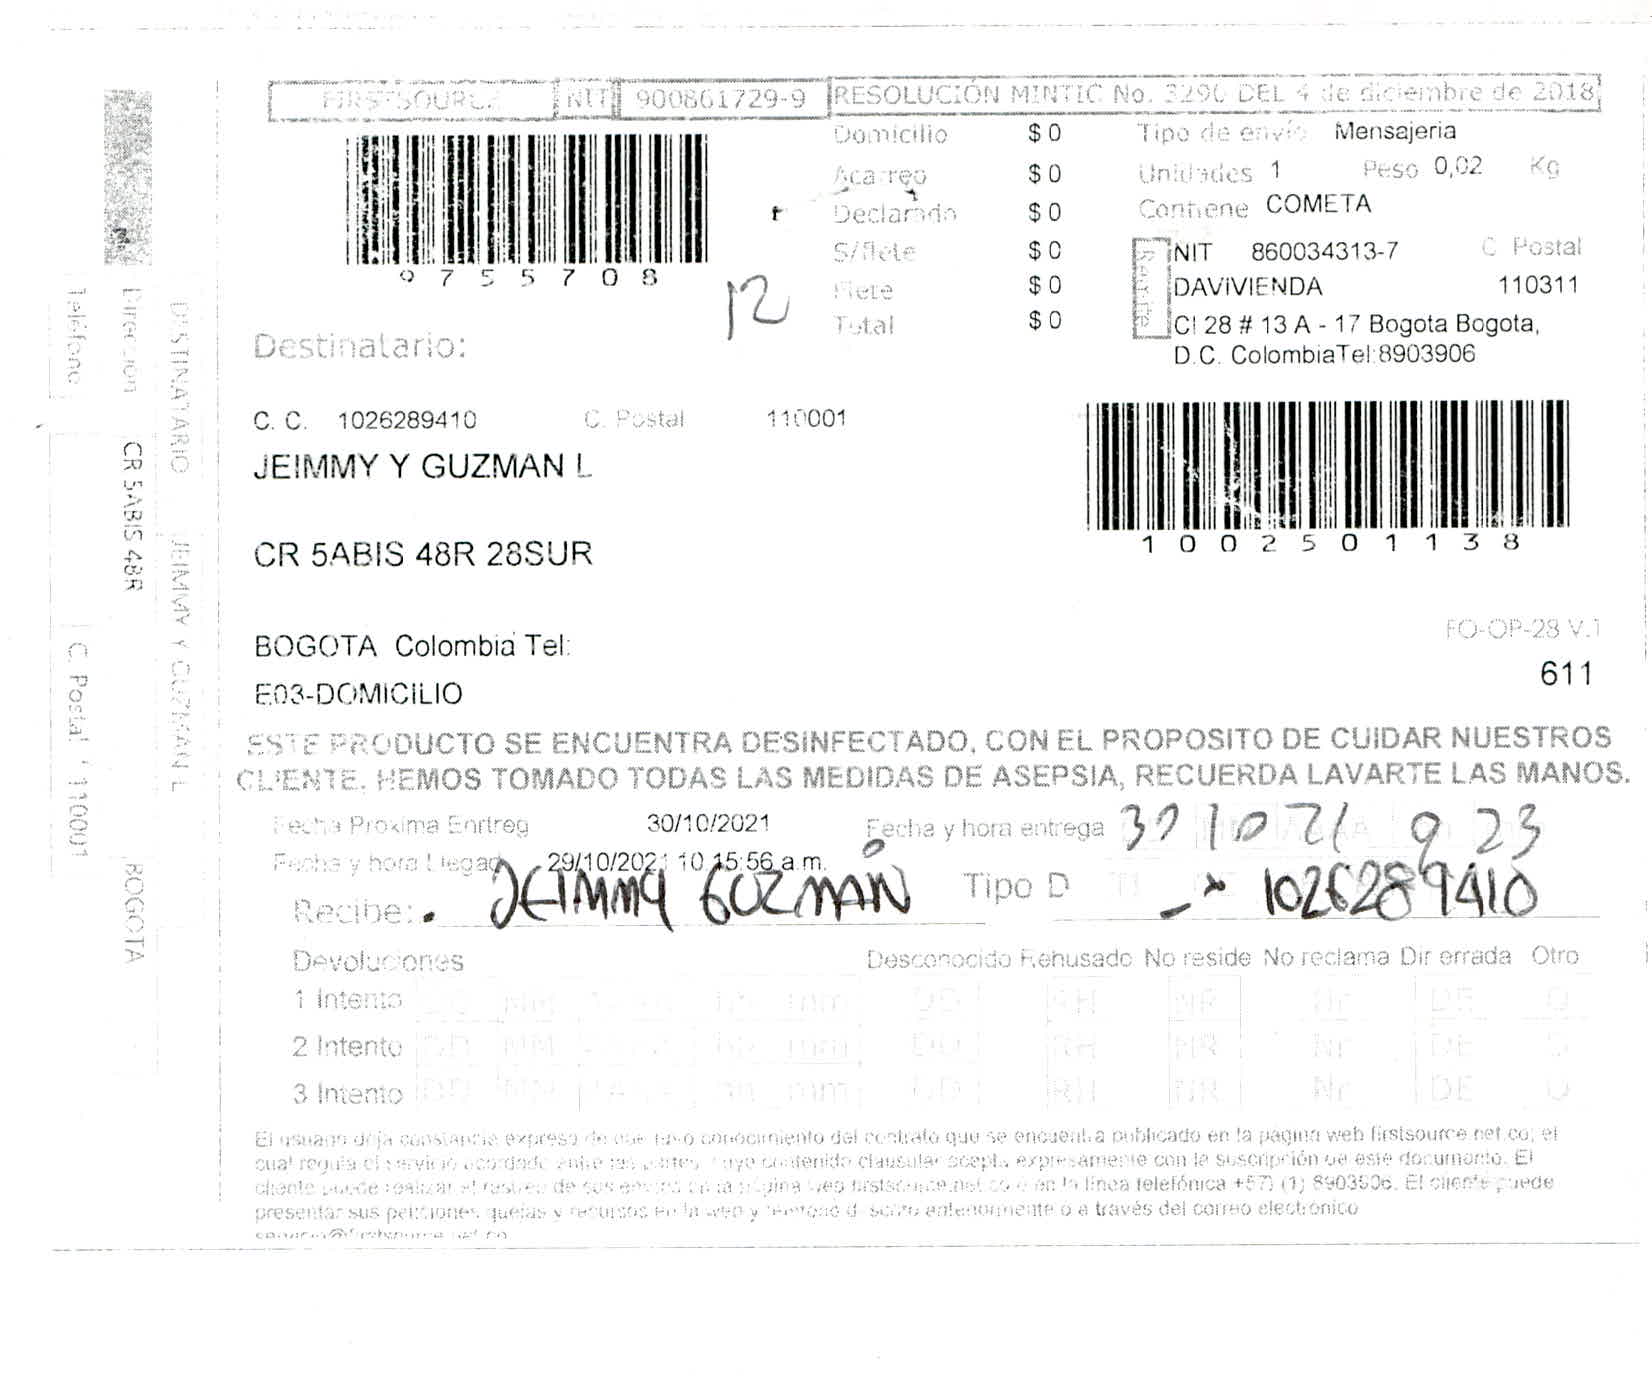 FIRSTSOURCE NIT 900861729-9 RESOLUCIÓN MINTIC No. 3290 DEL 4 de diciembre de 2018
9755708
12
Domicilio $ 0
Acarreo $ 0
Declarado $ 0
S/flete $ 0
Flete $ 0
Total $ 0
Tipo de envío Mensajeria
Unidades 1 Peso 0,02 Kg
Contiene COMETA
Remite
NIT 860034313-7 C Postal
DAVIVIENDA 110311
Cl 28 # 13 A - 17 Bogota Bogota,
D.C. ColombiaTel:8903906
Destinatario:
C. C. 1026289410 C. Postal 110001
JEIMMY Y GUZMAN L
CR 5ABIS 48R 28SUR
BOGOTA Colombia Tel:
E03-DOMICILIO
1002501138
FO-OP-28 V.1
611
ESTE PRODUCTO SE ENCUENTRA DESINFECTADO, CON EL PROPOSITO DE CUIDAR NUESTROS
CLIENTE. HEMOS TOMADO TODAS LAS MEDIDAS DE ASEPSIA, RECUERDA LAVARTE LAS MANOS.
Fecha Proxima Enrtreg 30/10/2021 Fecha y hora entrega 10 21 9 23
Fecha y hora Llegad 29/10/2021 10 15:56 a.m.
Recibe: JEIMMY GUZMÁN Tipo D 1026289410
Devoluciones Desconocido Rehusado No reside No reclama Dir errada Otro
1 Intento DD MM hh mm DD RH NR Nr DE O
2 Intento DD MM hh mm DD RH NR Nr DE O
3 Intento DD MM hh mm DD RH NR Nr DE O
El usuario deja constancia expresa de que tuvo conocimiento del contrato que se encuentra publicado en la pagina web firstsource.net.co; el
cual regula el servicio acordado entre las partes, cuyo contenido clausular acepta expresamente con la suscripción de este documento. El
cliente puede realizar el rastreo de sus envios en la página web firstsource.net.co o en la línea telefónica +57) (1) 8903906. El cliente puede
presentar sus peticiones quejas y recursos en la web y teléfono d scrito anteriormente o a través del correo electronico
servicio@firstsource.net.co
Teléfono C. Postal 110001
Direccion CR 5ABIS 48R BOGOTA
DESTINATARIO JEIMMY Y GUZMAN L